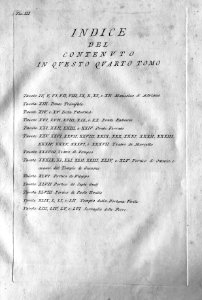 INDICE
DEL
CONTENUTO
IN QUESTO QUARTO TOMO
Tavola IV, V, VI, VII, VIII, IX, X, XI, e XII Mausoleo di Adriano
Tavola XIII Ponte Trionfale
Tavola XIV e XV Isola Tiberina
Tavola XVI, XVII, XVIII, XIX, e XX Ponte Fabrizio
Tavola XXI, XXII, XXIII, e XXIV Ponte Ferrato
Tavola XXV, XXVI, XXVII, XXVIII, XXIX, XXX, XXXI, XXXII, XXXIII,
XXXIV, XXXV, XXXVI, e XXXVII Teatro di Marcello
Tavola XXXVIII
Tavola XXXIX, XL, XLI, XLII, XLIII, XLIV, e XLV Portico di Ottavia, e
Tempio di Giunone
Tavola XLVI Portico di Filippo
Tavola XLVII Portico di
Tavola XLVIII Portico di
Tavola XLIX, L, LI, e LII Tempio della Fortuna Virile
Tavola LIII, LIV, LV, e LVI